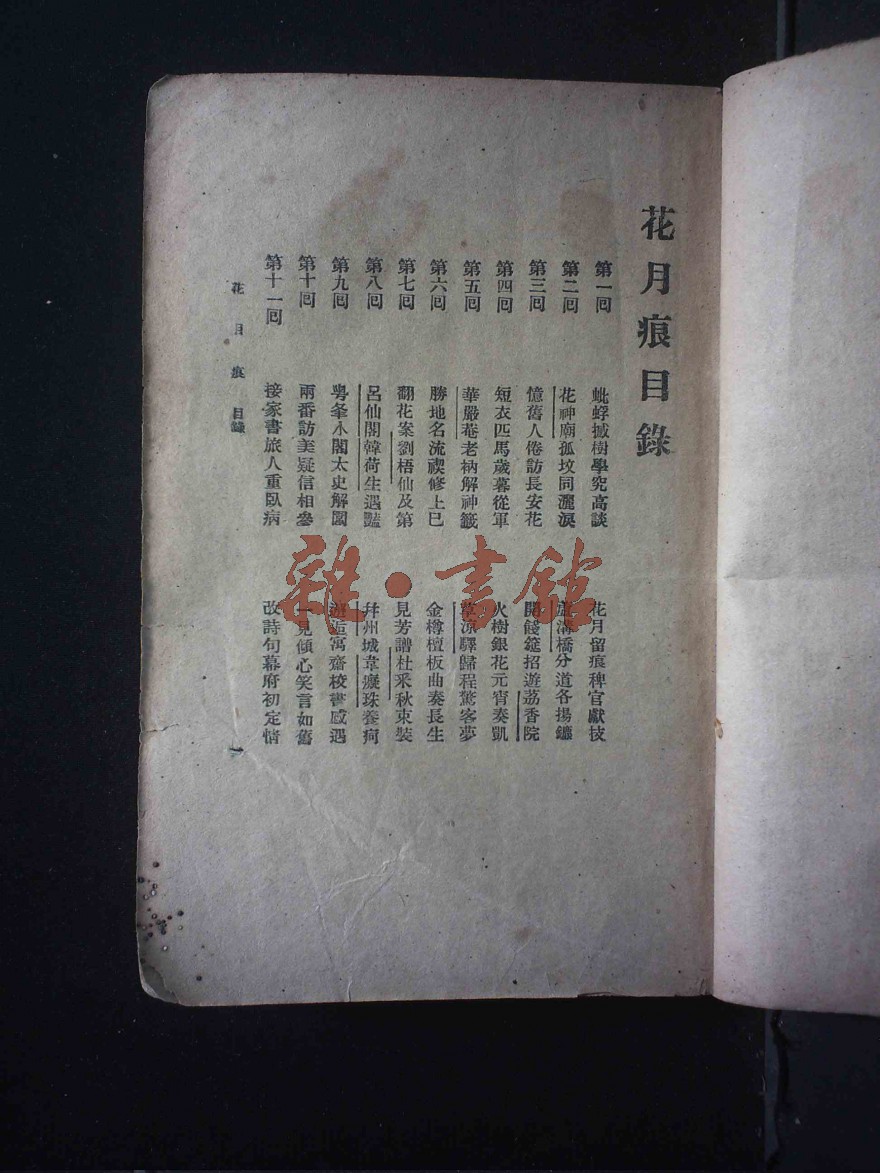 花月痕目錄
第一囘 蚍蜉撼樹學究高談 花月留痕稗官獻技
第二囘 花神廟孤墳同灑淚 蘆溝橋分道各揚鑣
第三囘 憶舊人倦訪長安花 開餞筵招遊荔香院
第四囘 短衣匹馬歲暮從軍 火樹銀花元宵奏凱
第五囘 華嚴菴老衲解神籤 草凉驛歸程驚客夢
第六囘 勝地名流禊修上巳 金樽檀板曲奏長生
第七囘 翻花案劉梧仙及第 見芳譜杜采秋束裝
第八囘 呂仙閣韓荷生遇豔 幷州城韋癡珠養疴
第九囘 甹夆水閣太史解圍 邂逅寓齋校書感遇
第十囘 兩番訪美疑信相參 一見傾心笑言如舊
第十一囘 接家書旅人重臥病 改詩句幕府初定情
花月痕 目錄 一
雜·書館